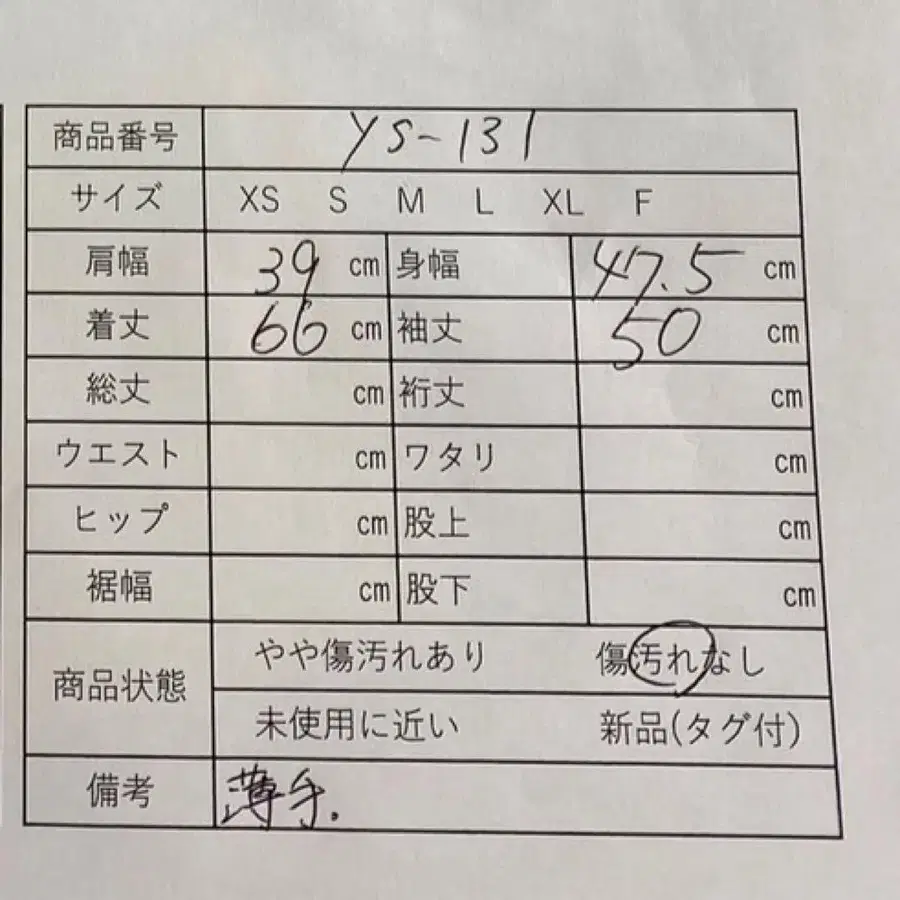 商品番号 YS-131
サイズ XS S M L XL F
肩幅 39 cm 身幅 47.5 cm
着丈 66 cm 袖丈 50 cm
総丈 cm 裄丈 cm
ウエスト cm ワタリ cm
ヒップ cm 股上 cm
裾幅 cm 股下 cm
商品状態 やや傷汚れあり 傷汚れなし
未使用に近い 新品(タグ付)
備考 薄手.